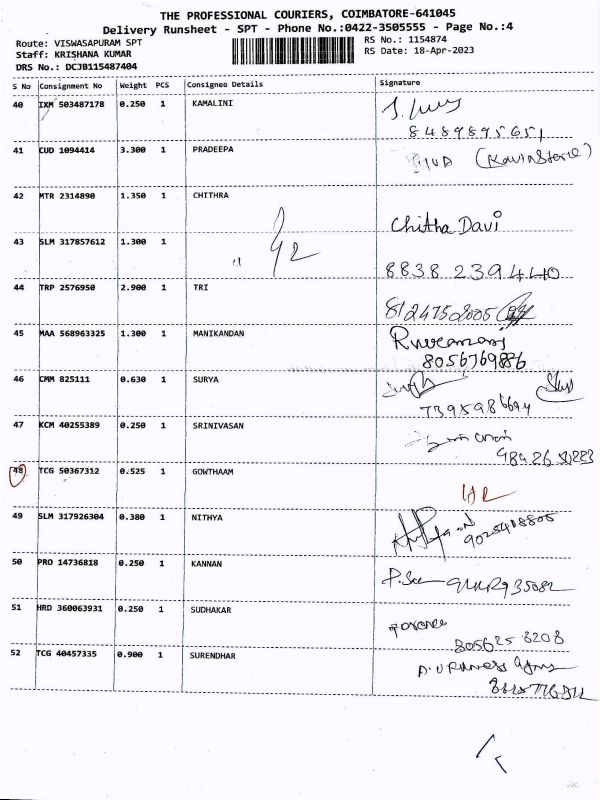 THE PROFESSIONAL COURIERS, COIMBATORE-641045
Delivery Runsheet - SPT - Phone No.:0422-3505555 - Page No.:4
Route: VISWASAPURAM SPT
RS No.: 1154874
Staff: KRISHANA KUMAR
RS Date: 18-Apr-2023
DRS No.: DCJB115487404
S No Consignment No Weight PCS Consignee Details Signature
40 IXM 503487178 0.250 1 KAMALINI
8489895651
41 CUD 1094414 3.300 1 PRADEEPA
42 MTR 2314890 1.350 1 CHITHRA
Chitha Davi
43 SLM 317857612 1.300 1
8838 239440
44 TRP 2576950 2.900 1 TRI
8124752005
45 MAA 568963325 1.300 1 MANIKANDAN
8056769886
46 CMM 825111 0.630 1 SURYA
7395986694
47 KCM 40255389 0.250 1 SRINIVASAN
48 TCG 50367312 0.525 1 GOWTHAAM
49 SLM 317926304 0.380 1 NITHYA
9025408805
50 PRO 14736818 0.250 1 KANNAN
51 HRD 360063931 0.250 1 SUDHAKAR
805625 8208
52 TCG 40457335 0.900 1 SURENDHAR